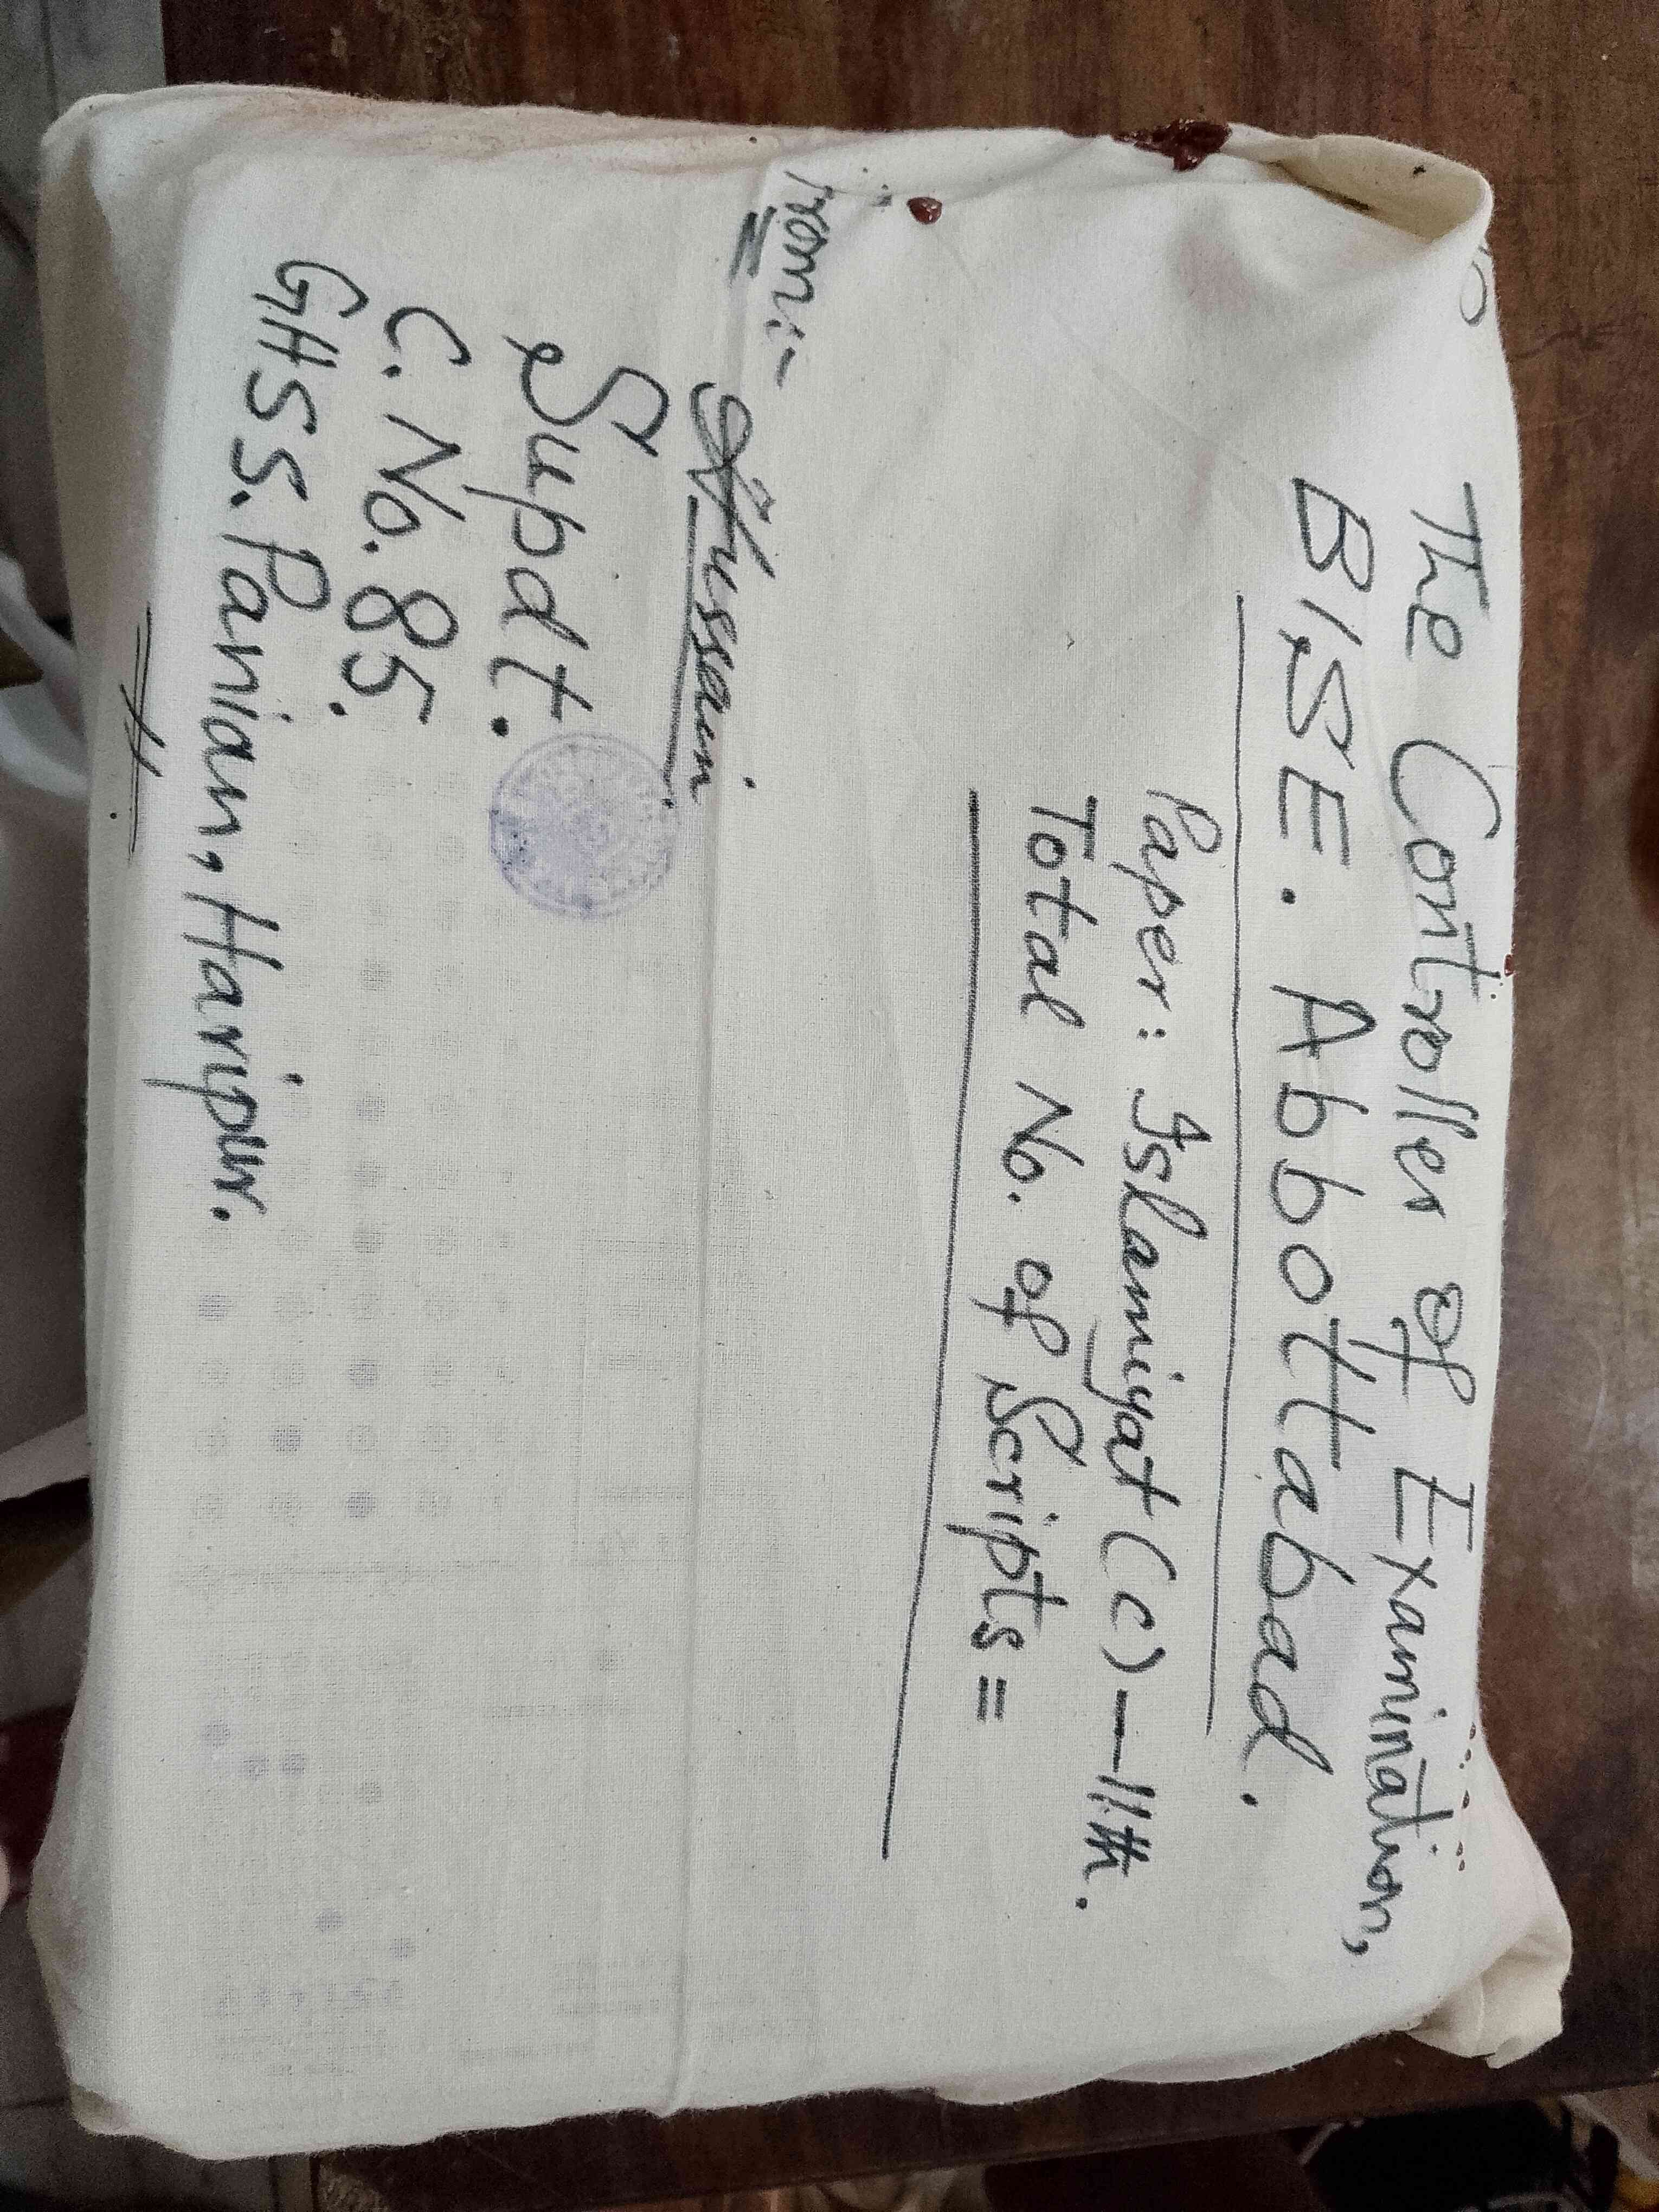 The Controller of Examination,
BISE. Abbottabad.
Paper: Islamiyat (c) — 11th.
Total No. of Scripts =
rom:-
Hussain
Supdt.
C. No. 85.
GHSS. Panian, Haripur.